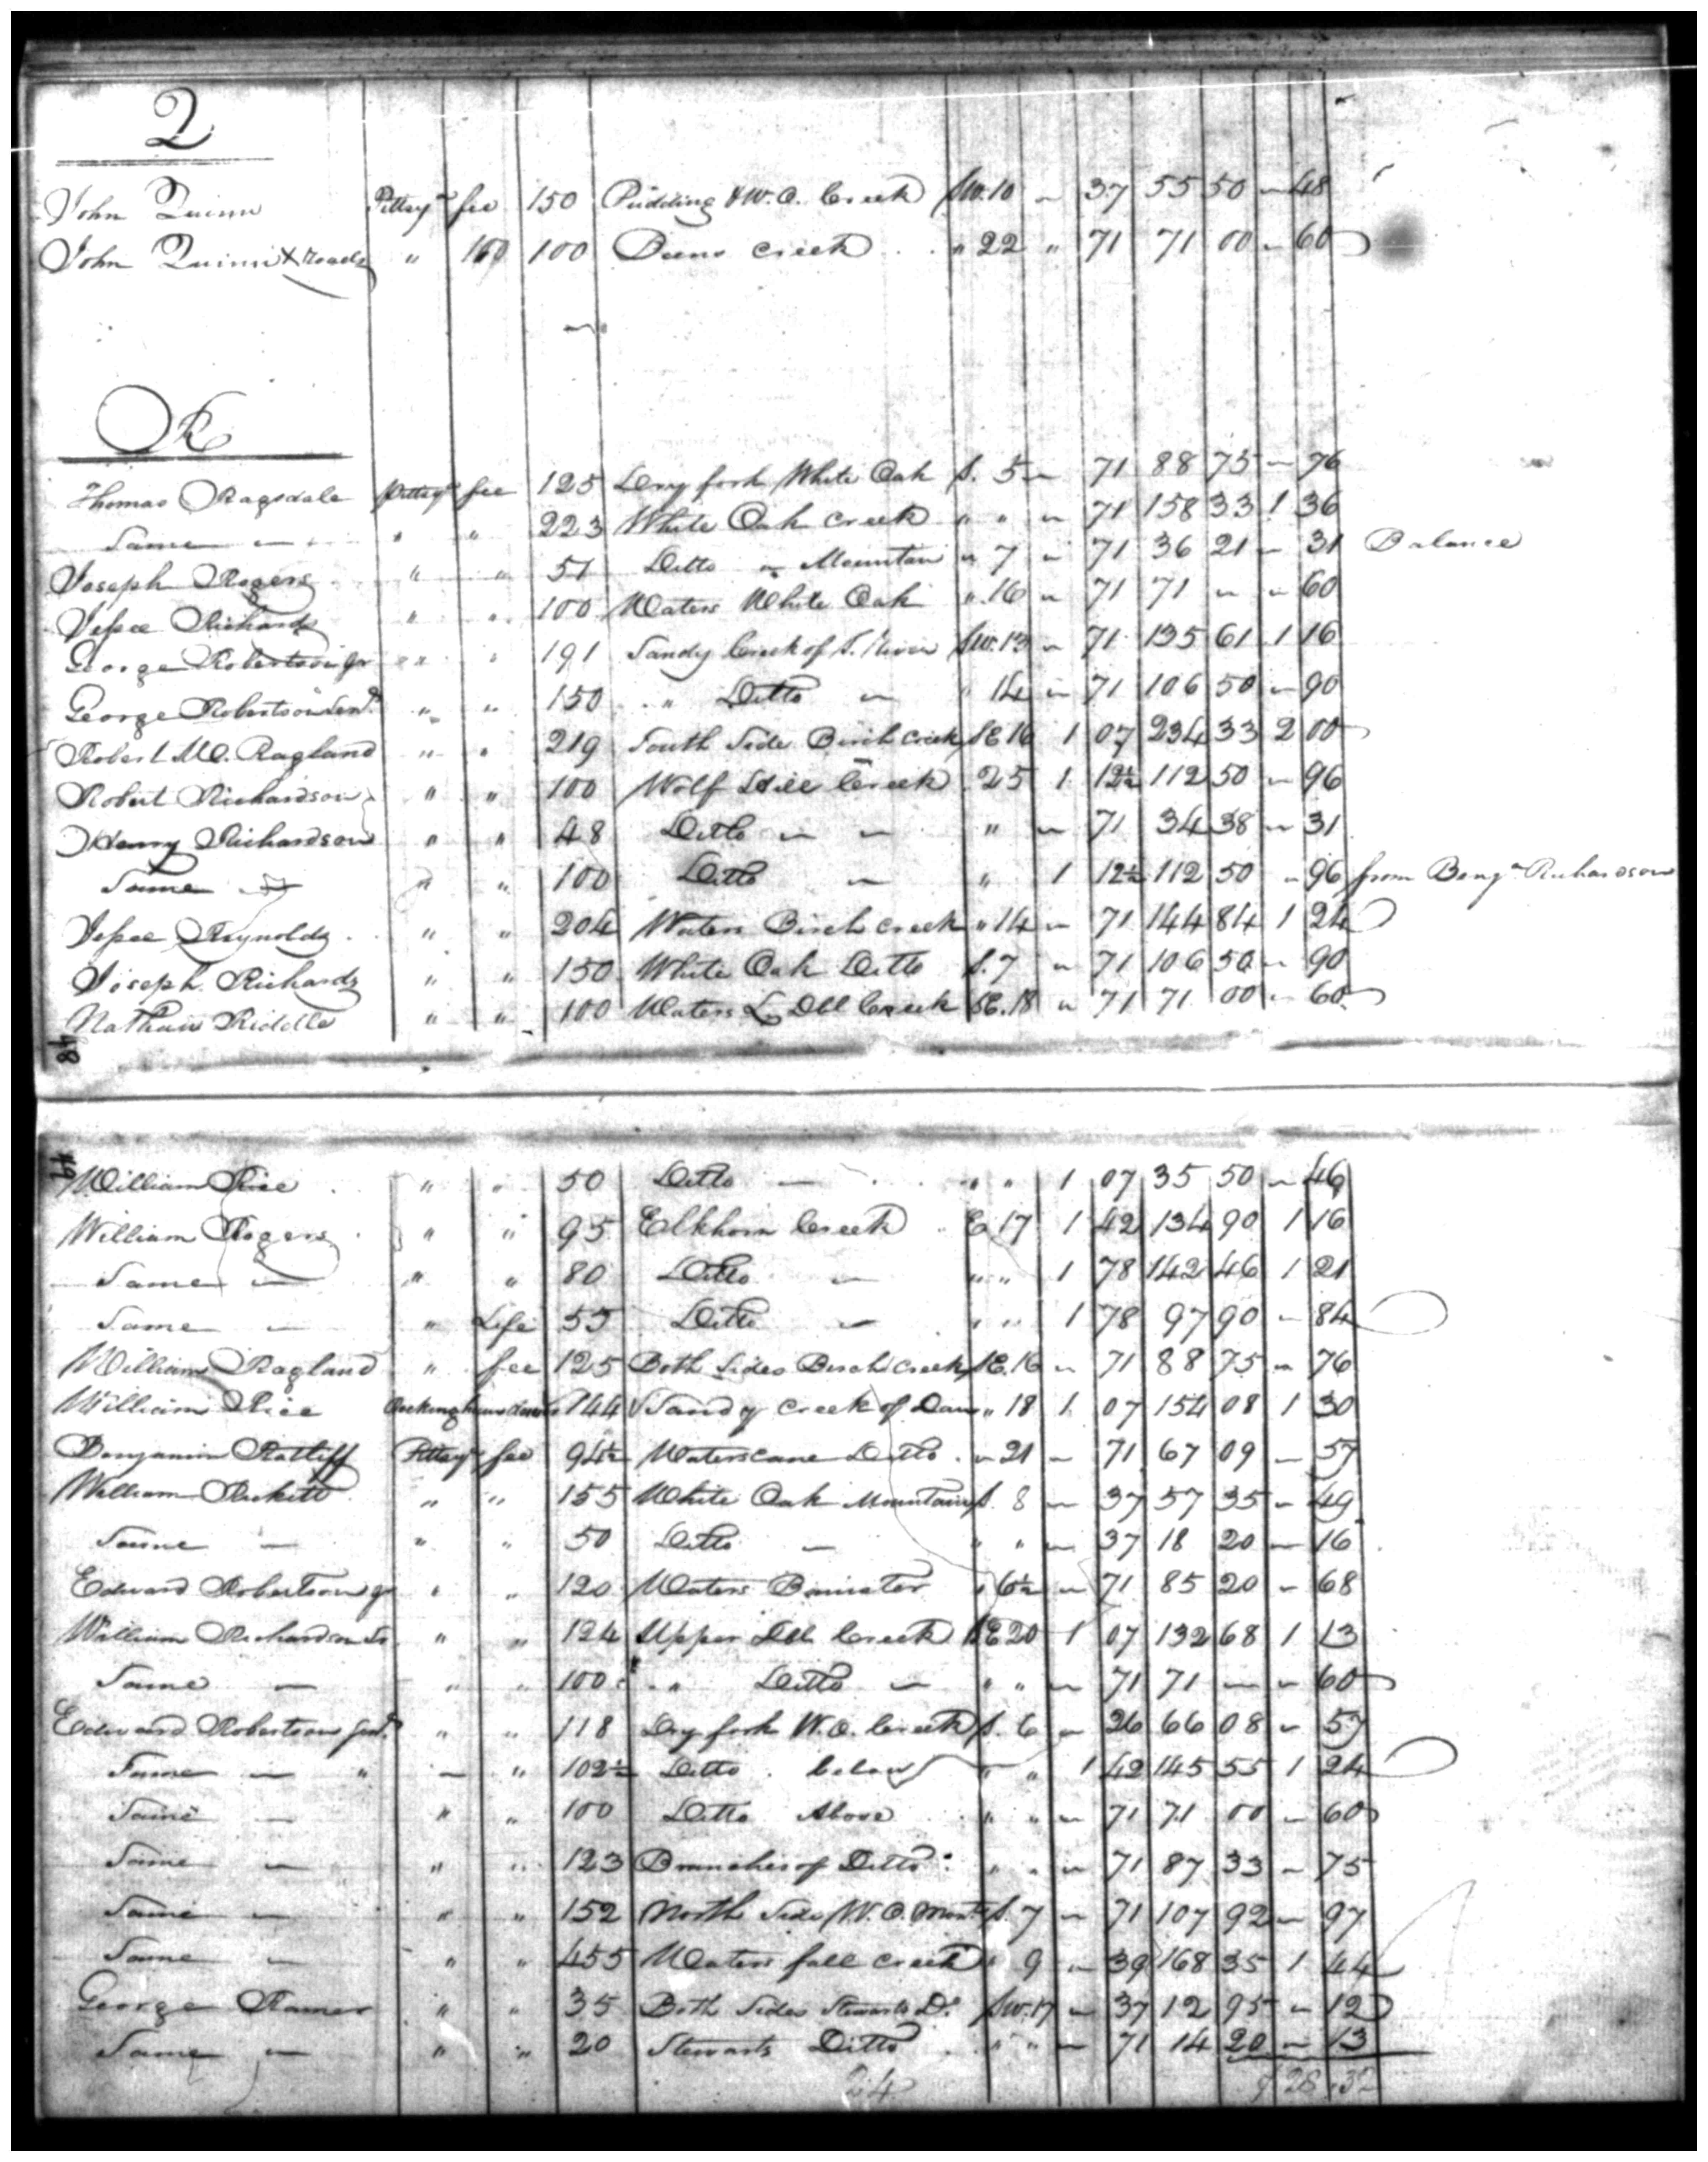 Q
John Quinn Pittsya fee 150 Pudding & W. O. Creek SW. 10 - 37 55 50 - 48
John Quinn X Roads " 150 100 Beens Creek " 22 " 71 71 00 - 60
R
Thomas Ragsdale Pittsya fee 125 Dry fork White Oak S. 5 - 71 88 75 - 76
Same - " " 223 White Oak Creek " " - 71 158 33 1 36
Joseph Rogers " " 51 Ditto - Mountain " 7 - 71 36 21 - 31 Balance
Jesse Richards " " 100 Waters White Oak " 16 - 71 71 - - 60
George Robertson Jr " " 191 Sandy Creek of S. River SW. 13 - 71 135 61 1 16
George Robertson Senr. " " 150 " Ditto - " 14 - 71 106 50 - 90
Robert Ragland " " 219 South Side Birch Creek SE 16 1 07 234 33 2 00
Robert Richardson " " 100 Wolf Hill Creek 25 1 12½ 112 50 - 96
Henry Richardson " " 48 Ditto - - " - 71 34 38 - 31
Same " " 100 Ditto - " 1 12½ 112 50 - 96 from Benja Richardson
Jesse Reynolds " " 204 Waters Birch Creek " 14 - 71 144 84 1 24
Joseph Richards " " 150 White Oak Ditto S. 7 - 71 106 50 - 90
Nathan Riddle " " 100 Waters L. Dbl Creek SE. 18 - 71 71 00 - 60
48
49
William Rice " " 50 Ditto - " " 1 07 35 50 - 46
William Rogers " " 95 Elkhorn Creek E 17 1 42 134 90 1 16
Same - " " 80 Ditto - " " 1 78 142 46 1 21
Same - " Life 55 Ditto - " " 1 78 97 90 - 84
William Ragland " fee 125 Both Sides Birch Creek SE. 16 - 71 88 75 - 76
William Rice Rockingham 144 Sandy Creek of Dan " 18 1 07 154 08 1 30
Benjamin Ratliff Pittsya fee 94½ Waters Cane Ditto " 21 - 71 67 09 - 57
William Rickett " " 155 White Oak Mountain S. 8 - 37 57 35 - 49
Same - " " 50 Ditto - " " - 37 18 20 - 16
Edward Robertson Jr " " 120 Waters Banister " 6½ - 71 85 20 - 68
William Richardson Sr " " 124 Upper Dbl Creek SE 20 1 07 132 68 1 13
Same - " " 100 " Ditto - " " - 71 71 - - 60
Edward Robertson Senr. " " 118 Dry fork W. O. Creek S. 6 - 26 66 08 - 57
Same - " - " 102½ Ditto below " " 1 42 145 55 1 24
Same - " " 100 Ditto Above " " - 71 71 00 - 60
Same - " " 123 Branches of Ditto " " - 71 87 33 - 75
Same - " " 152 North Side W. O. Mont S. 7 - 71 107 92 - 97
Same - " " 455 Waters fall Creek " 9 - 39 168 35 1 44
George Ramer " " 35 Both Sides Stewarts Do. SW. 17 - 37 12 95 - 12
Same - " " 20 Stewarts Ditto " " - 71 14 20 - 13
24